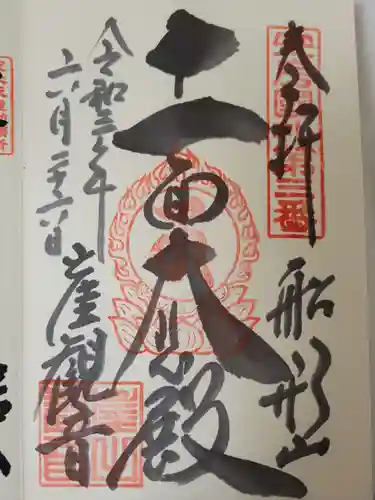 奉拝
第三番
船形山
十一面大悲殿
令和三年
六月二十六日
崖観音